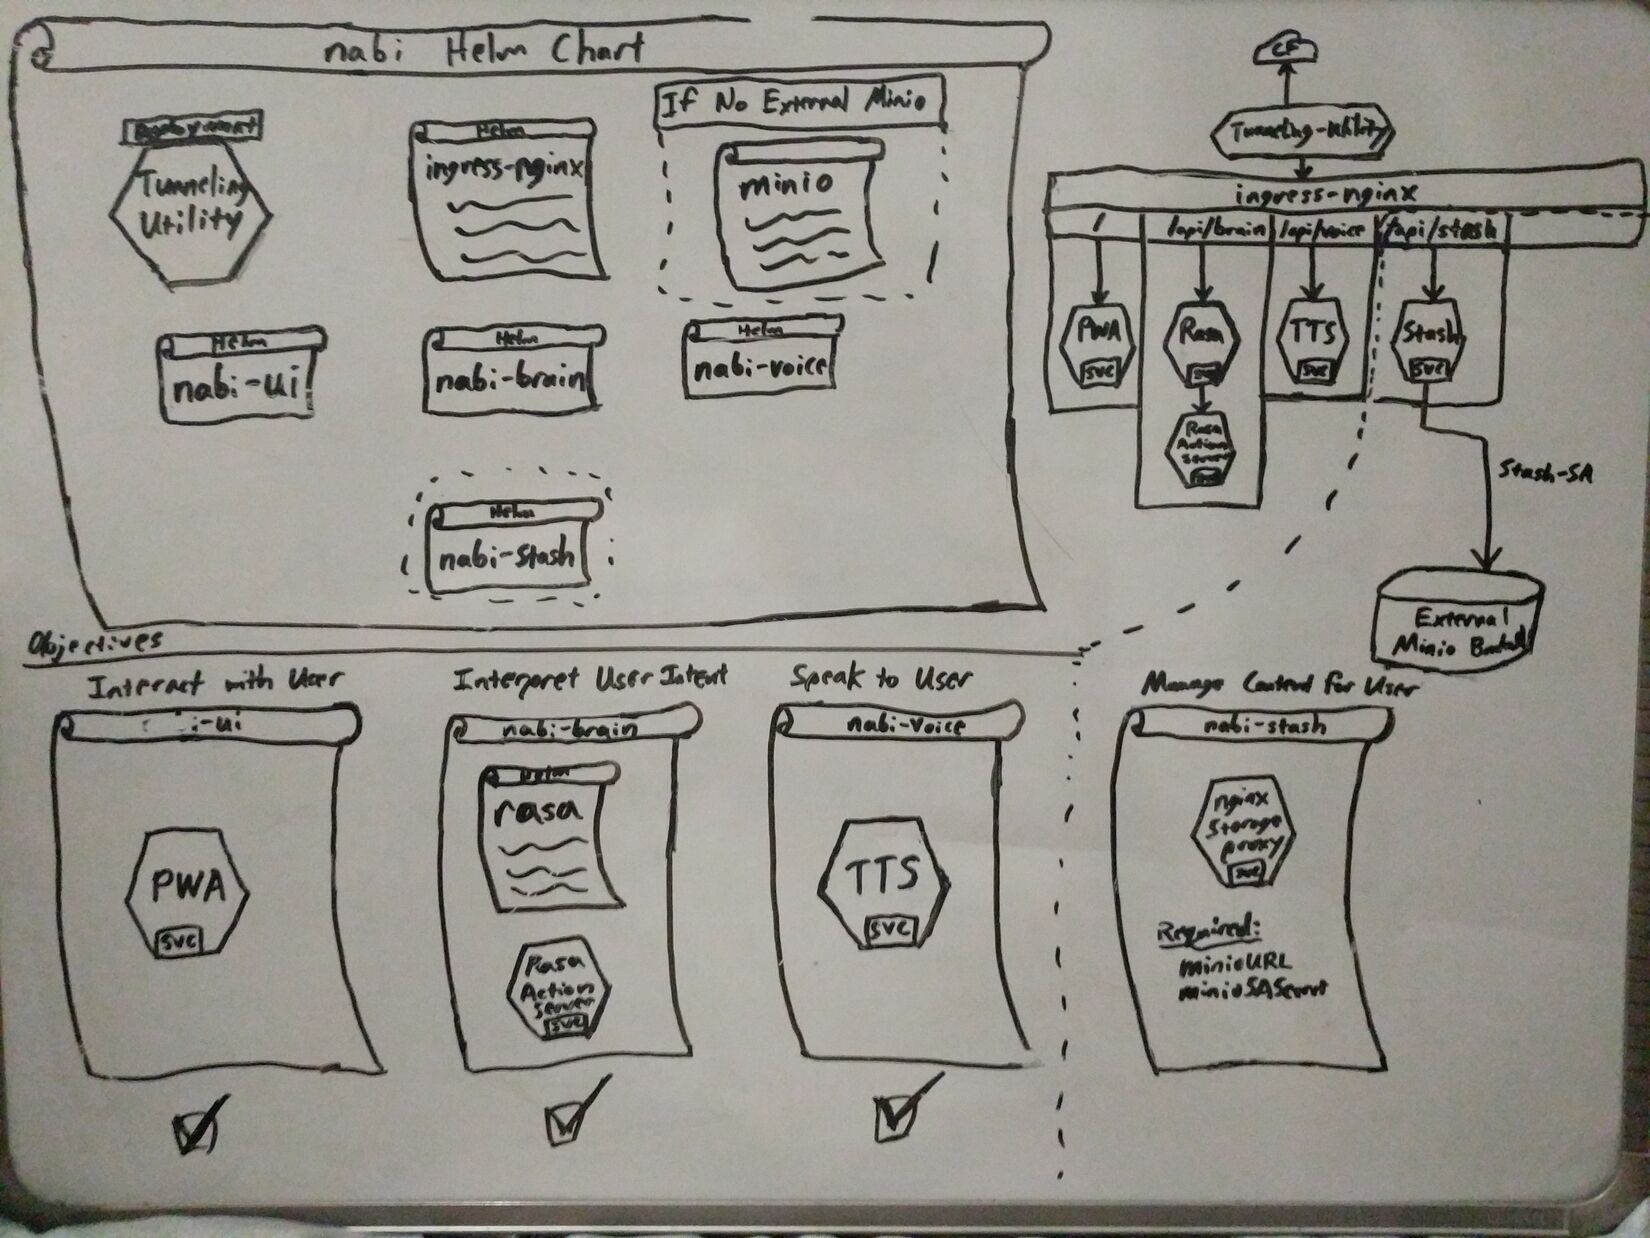 nabi Helm Chart
Deployment
Tunneling
Utility
Helm
ingress-nginx
If No External Minio
minio
Helm
nabi-ui
Helm
nabi-brain
Helm
nabi-voice
Helm
nabi-stash
CF
Tunneling-Utility
ingress-nginx
/
/api/brain
/api/voice
/api/stash
PWA
SVC
Rasa
SVC
TTS
SVC
Stash
SVC
Rasa
Action
Server
Stash-SA
External
Minio Bucket
Objectives
Interact with User
i-ui
PWA
SVC
Interpret User Intent
nabi-brain
Helm
rasa
Rasa
Action
Server
SVC
Speak to User
nabi-voice
TTS
SVC
Manage Content for User
nabi-stash
nginx
Storage
proxy
SVC
Required:
minioURL
minioSASecret